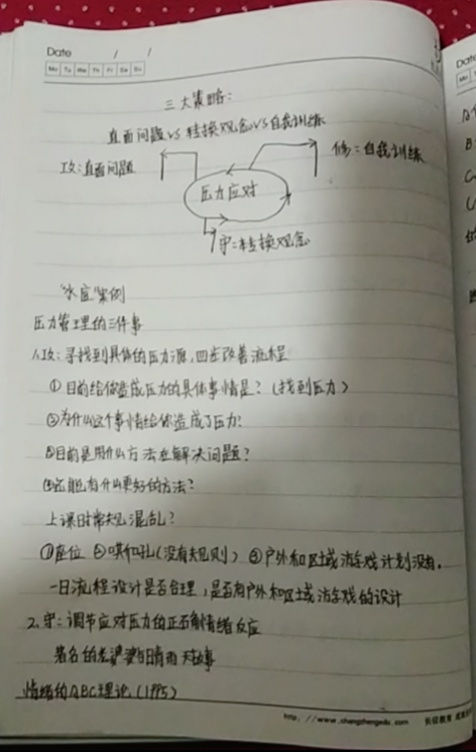 Date / /
Mo Tu We Th Fr Sa Su
三大策略:
直面问题VS转换观念VS自我训练
攻:直面问题
修:自我训练
压力应对
守:转换观念
"水应"案例
压力管理的三件事
1、攻:寻找到具体的压力源,四步改善流程
①目前给你造成压力的具体事情是?(找到压力)
②为什么这个事情给你造成了压力?
③目前是用什么方法在解决问题?
④还能有什么更好的方法?
上课时常规混乱?
①座位 ②哄和乱(没有规则) ③户外和区域活游戏计划没有.
一日流程设计是否合理,是否有户外和区域活游戏的设计
2.守:调节应对压力的正面情绪反应
著名的老婆婆与晴雨天故事
情绪的ABC理论(1995)
http://www.changzhengedu.com 长征教育